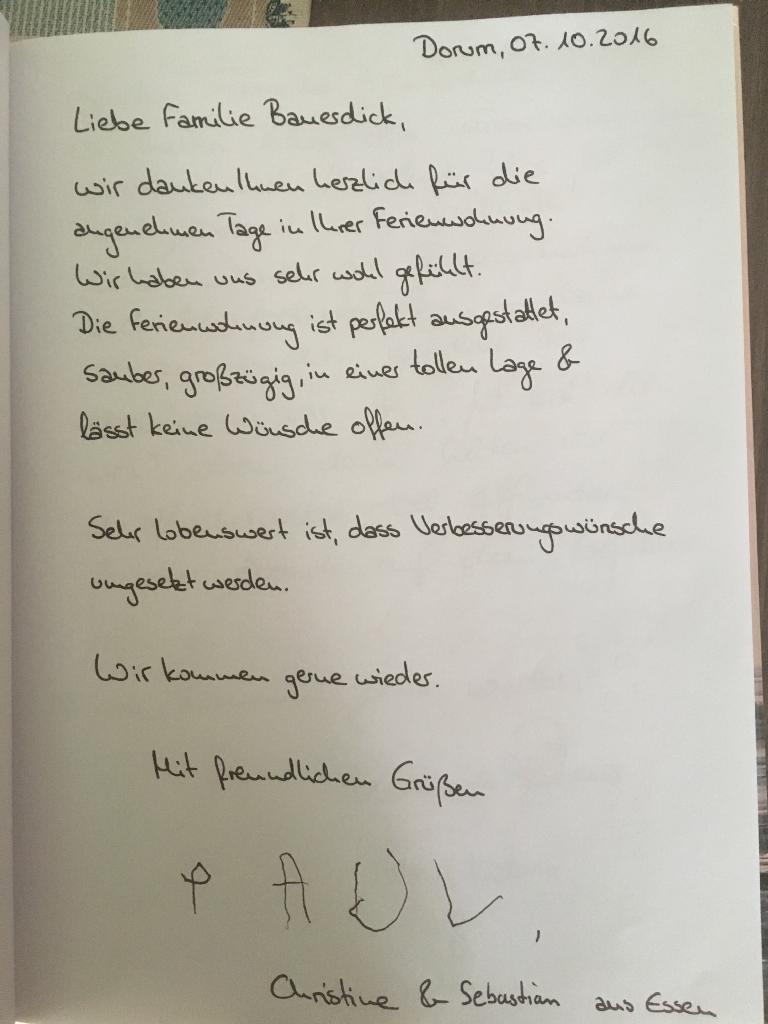 Dorum, 07.10.2016
Liebe Familie Bauerdick,
wir danken Ihnen herzlich für die
angenehmen Tage in Ihrer Ferienwohnung.
Wir haben uns sehr wohl gefühlt.
Die Ferienwohnung ist perfekt ausgestattet,
sauber, großzügig, in einer tollen Lage &
lässt keine Wünsche offen.
Sehr lobenswert ist, dass Verbesserungswünsche
umgesetzt werden.
Wir kommen gerne wieder.
Mit freundlichen Grüßen
PAUL,
Christine & Sebastian aus Essen